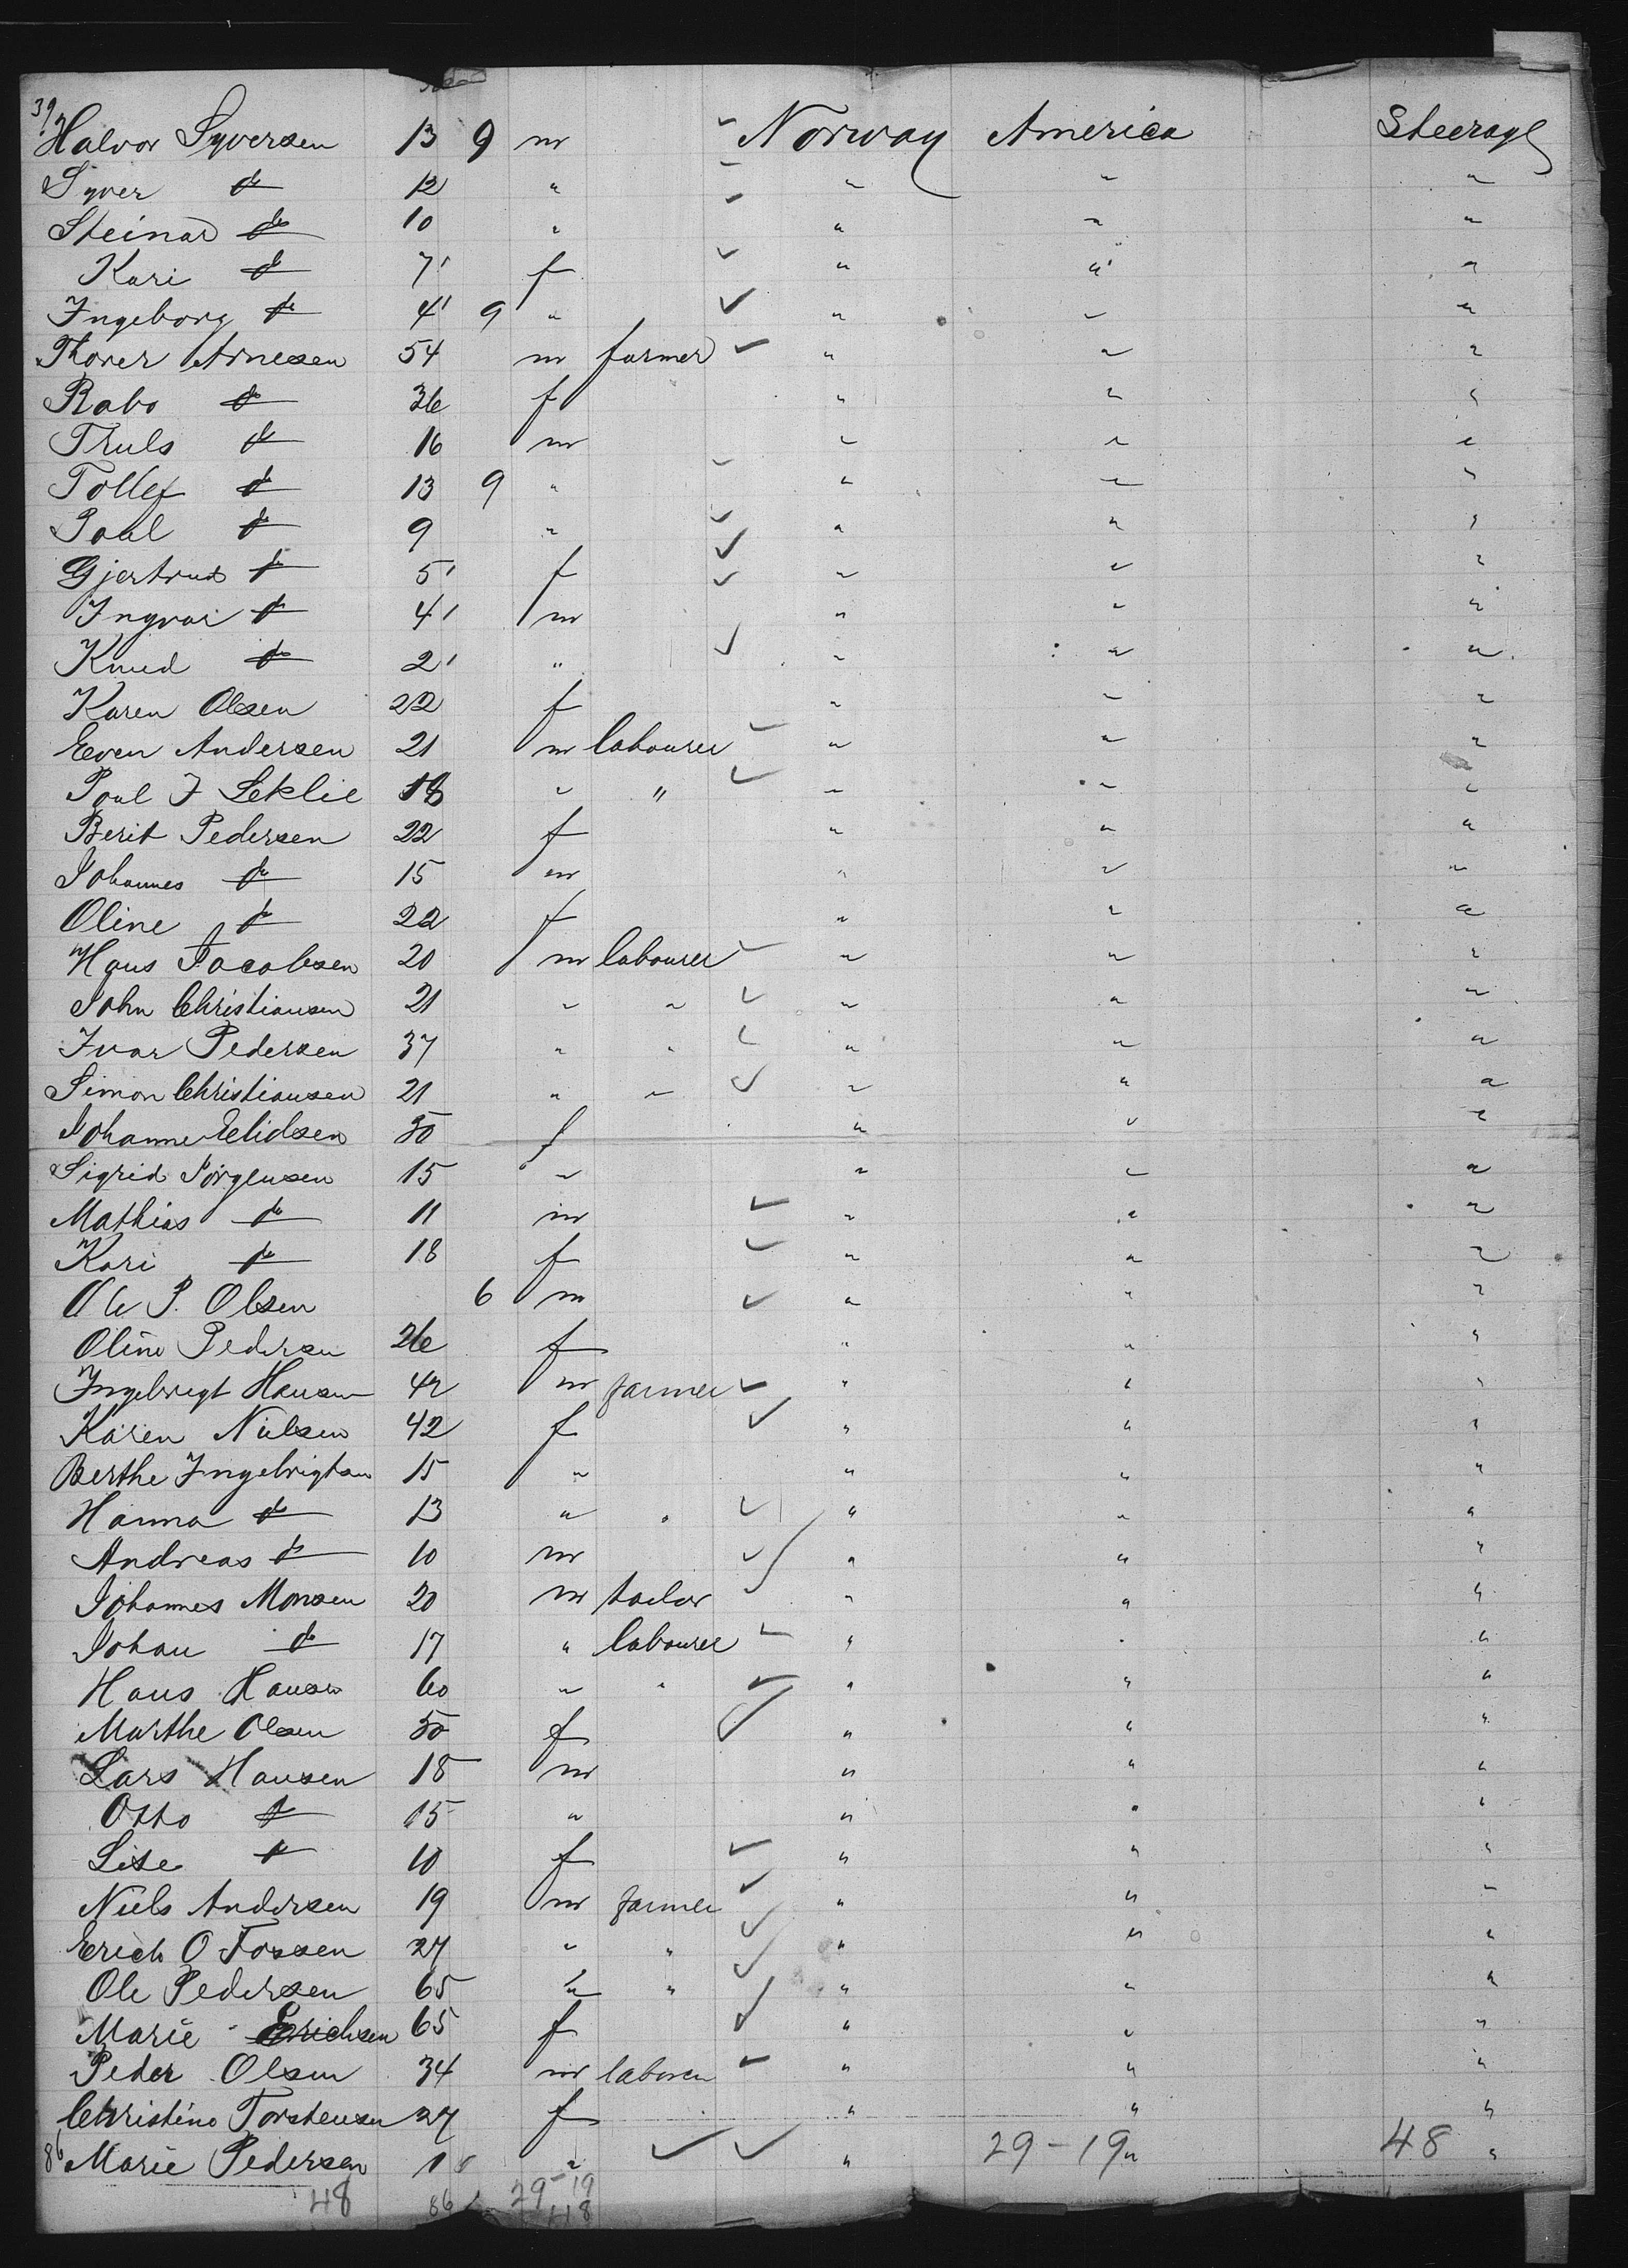 39
Halvor Syversen 13 9 m Norway America Steerage
Syver do 12 " " " "
Steinar do 10 " " " "
Kari do 7 f " " "
Ingeborg do 4 9 " " " "
Thorer Arnesen 54 m farmer " " "
Rabo do 36 f " " "
Truls do 16 m " " "
Tollef do 13 9 " " " "
Poul do 9 " " " "
Gjertrud do 5 f " " "
Ingvar do 4 m " " "
Knud do 2 " " " "
Karen Olsen 22 f " " "
Even Andersen 21 m labourer " " "
Poul J Leklie 18 " " " " "
Berit Pedersen 22 f " " "
Johannes do 15 m " " "
Oline do 22 f " " "
Hans Jacobsen 20 m labourer " " "
John Christiansen 21 " " " " "
Ivar Pedersen 37 " " " " "
Simon Christiansen 21 " " " " "
Johanne Eelidsen 50 f " " "
Sigrid Jörgensen 15 " " " "
Mathias do 11 m " " "
Kari do 18 f " " "
Ole P. Olsen 6 m " " "
Oline Pedersen 26 f " " "
Ingebrigt Hansen 42 m farmer " " "
Karen Nielsen 42 f " " "
Berthe Ingebrigtsen 15 " " " "
Hanna do 13 " " " "
Andreas do 10 m " " "
Johannes Monsen 20 m tailor " " "
Johan do 17 " labourer " " "
Hans Hansen 60 " " " " "
Marthe Olsen 50 f " " "
Lars Hansen 18 m " " "
Otto do 15 " " " "
Lise do 10 f " " "
Niels Andersen 19 m farmer " " "
Erich O Fossen 27 " " " " "
Ole Pedersen 65 " " " " "
Marie Erichsen 65 f " " "
Peder Olsen 34 m laborer " " "
Christine Torstensen 27 f " " "
86 Marie Pedersen " " 29-19 " 48 "
48 86 29-19
48